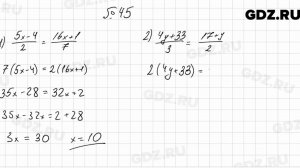 GDZ.RU
№45
1) (5x-4)/2 = (16x+1)/7
7(5x-4) = 2(16x+1)
35x-28 = 32x+2
35x-32x = 2+28
3x = 30 x=10
2) (4y+33)/3 = (17+y)/2
2(4y+33) =